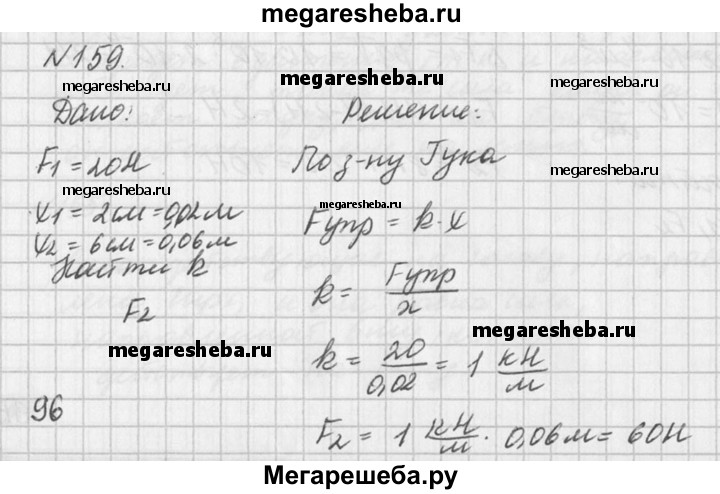 megaresheba.ru
N159.
megaresheba.ru
megaresheba.ru
megaresheba.ru
Дано:
Решение:
F1 = 20Н
По з-ну Гука
megaresheba.ru
megaresheba.ru
x1 = 2см = 0,02м
x2 = 6см = 0,06м
Fупр = k · x
Найти k
F2
k = Fупр / x
megaresheba.ru
megaresheba.ru
k = 20 / 0,02 = 1 кН / м
96
F2 = 1 кН / м · 0,06м = 60Н
Мегарешеба.ру